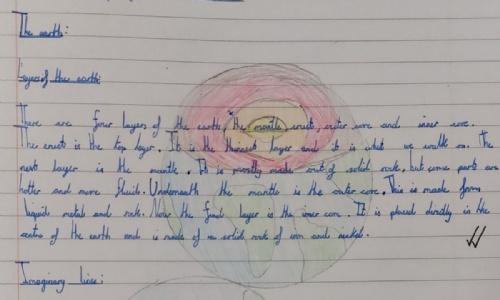 The earth:
Layers of the earth:
There are four layers of the earth, the mantle crust, outer core and inner core.
The crust is the top layer. It is the thinest layer and it is what we walk on. The
next layer is the mantle. It is mostly made out of solid rock, but some parts are
hotter and more fluid. Underneath the mantle is the outer core. This is made from
liquid metal and rock. Now the final layer is the inner core. It is placed directly in the
centre of the earth and is made of solid rock of iron and nickel.
Imaginary lines: